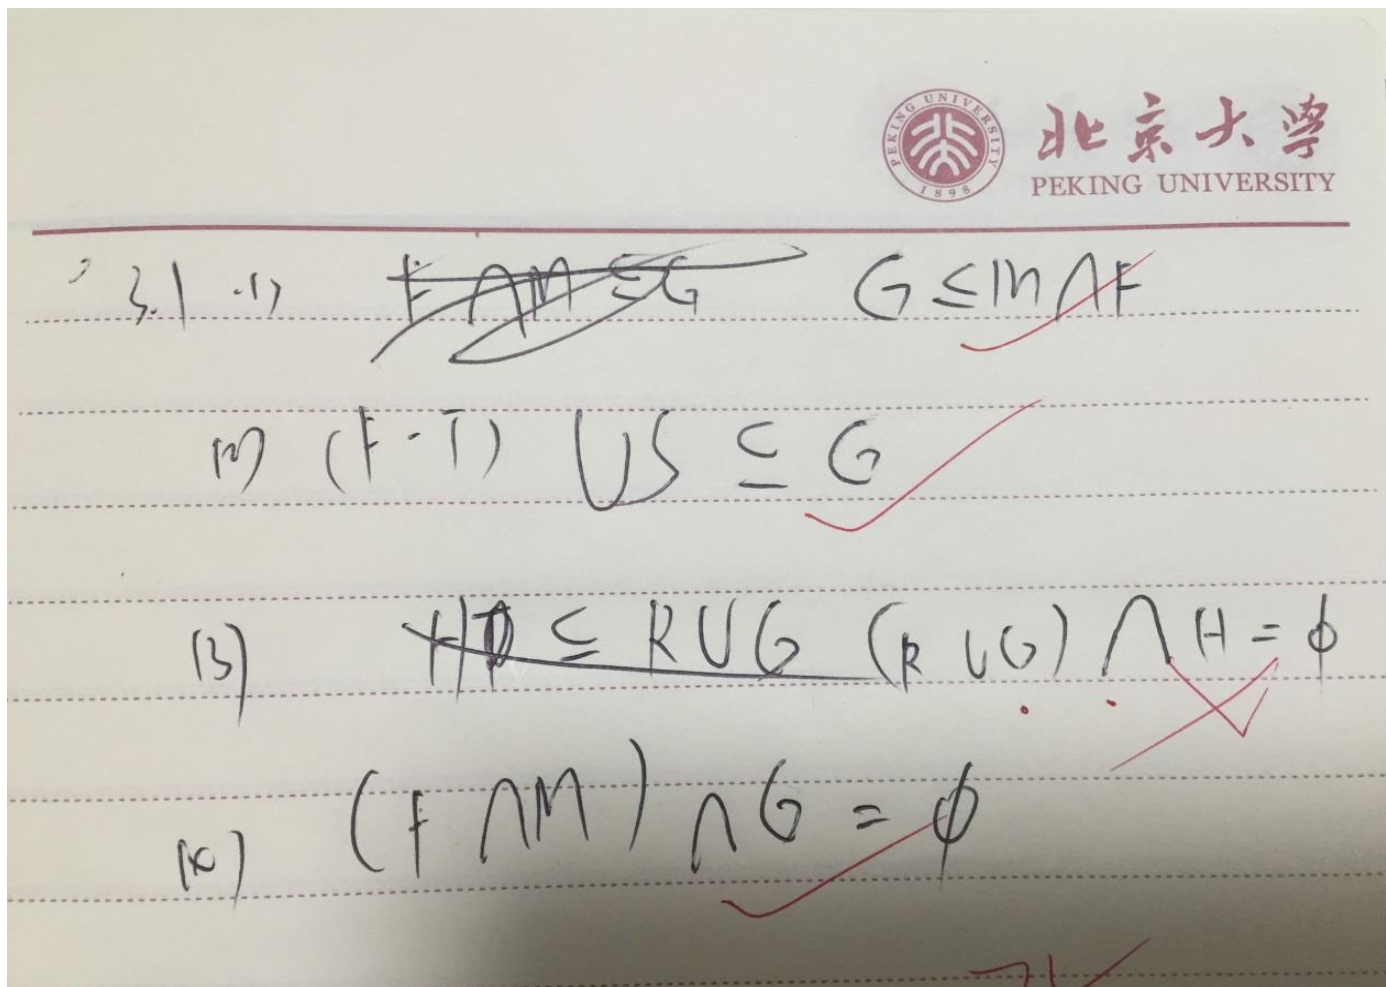 PEKING UNIVERSITY
1898
北京大学
PEKING UNIVERSITY
3.1 (1) F∩M⊆G G⊆M∩F
(2) (F-T)∪S⊆G
(3) ⊆R∪G (R∪G)∩H=ϕ
(4) (F∩M)∩G=ϕ